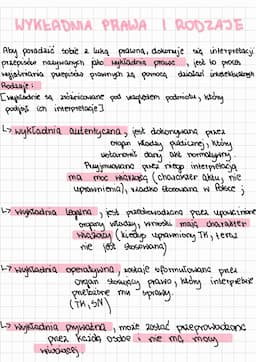 WYKŁADNIA PRAWA I RODZAJE
Aby poradzić sobie z luką prawną, dokonuje się interpretacji
przepisów nazywanych jako wykładnia prawa, jest to proces
wyjaśniania przepisów prawnych za pomocą działań intelektualnych
Rodzaje:
[wykładnie są zróżnicowane pod względem podmiotu, który
podjął ich interpretację]
↳ wykładnia autentyczna, jest dokonywana przez
organ władzy publicznej, który
ustanowił dany akt normatywny.
Przyjmowana przez niego interpretacja
ma moc wiążącą (charakter aktu, nie
uprawnienia), rzadko stosowana w Polsce;
↳ wykładnia legalna, jest przeprowadzona przez upoważnione
organy władzy, wnioski mają charakter
wiążący (kiedyś uprawniony TK, teraz
nie jest stosowana)
↳ wykładnia operatywna, zostaje sformułowana przez
organ stosujący prawo, który interpretuje
przebieg sprawy.
(TK, SN)
↳ wykładnia prywatna, może zostać przeprowadzona
przez każdą osobę i nie ma mocy
wiążącej.